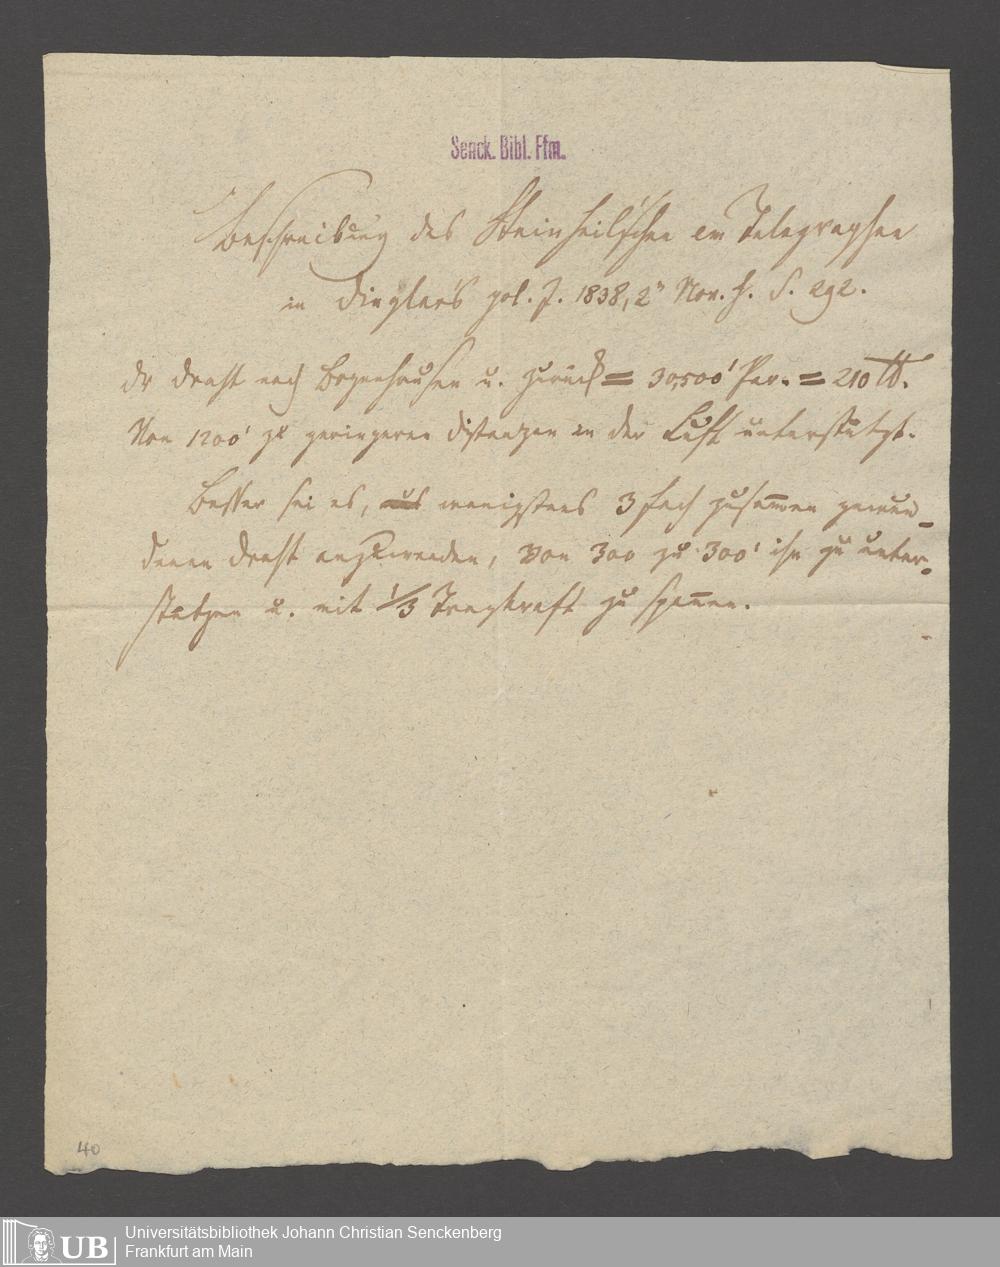 Senck. Bibl. Ffm.
Beschreibung des Steinheil'schen em Telegraphen
in Dingler's pol. J. 1838, 2s Nov. H. S. 292.
Dr Draht nach Bogenhausen u. zurück = 30,500' Par. = 210 ℔.
Von 1200' geringeren Distanzen in der Luft unterstützt.
Besser sei es, aus wenigstens 3fach zusam̅en gewun-
denen Draht anzuwenden, von 300 zu 300' ihn zu unter-
stützen u. mit 1/3 Tragkraft zu span̅en.
40
UB
Universitätsbibliothek Johann Christian Senckenberg
Frankfurt am Main